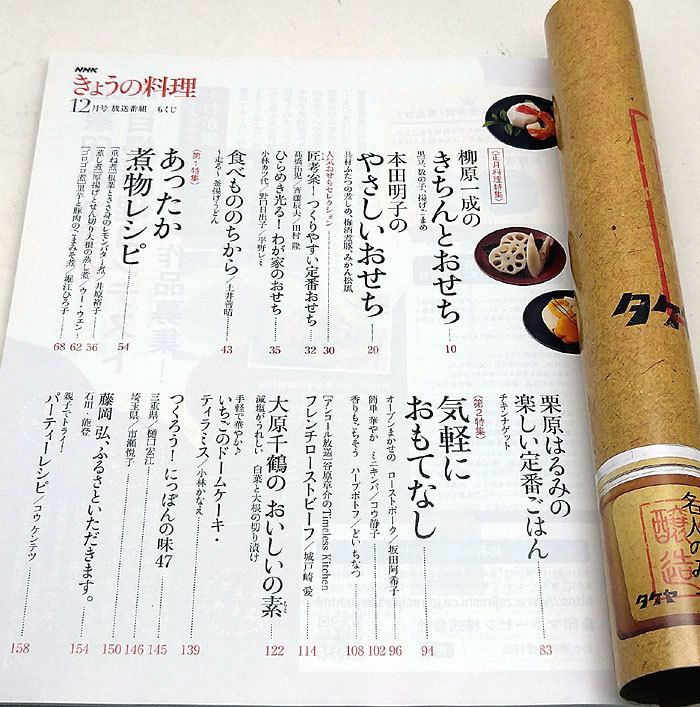 NHK
きょうの料理
12月号 放送番組 もくじ
〈正月料理特集〉
柳原一成の
きちんとおせち……10
黒豆、数の子、揚げごまめ
本田明子の
やさしいおせち……20
具材ふたつの煮しめ、梅酒煮豚、みかん松風
人気おせちセレクション
匠考案！ つくりやすい定番おせち……30
髙橋拓児／斉藤辰夫／田村 隆……32
ひらめき光る！ わが家のおせち……35
小林カツ代／野口日出子／平野レミ
食べもののちから／土井善晴……43
〜走る〜 釜揚げうどん
〈第1特集〉
あったか
煮物レシピ……54
[重ね煮]根菜とささ身のレモンバター煮／井原裕子……56
[蒸し煮]厚揚げとせん切り大根の蒸し煮／ウー・ウェン……62
[ゴロゴロ煮]里芋と豚肉のごまみそ煮／堀江ひろ子……68
栗原はるみの
楽しい定番ごはん……83
チキンナゲット
〈第2特集〉
気軽に
おもてなし……94
オーブンまかせの ローストポーク／坂田阿希子……96
簡単 華やか ミニキンパ／コウ静子……102
香りもごちそう ハーブポトフ／どい ちなつ……108
[アンコール放送]谷原章介のTimeless Kitchen
フレンチローストビーフ／城戸崎 愛……114
大原千鶴の おいしいの素……122
もと
減塩がうれしい 白菜と大根の切り漬け
手軽で華やか♪
いちごのドームケーキ・
ティラミス／小林かなえ……139
つくろう！ にっぽんの味47
三重県／樋口宏江……145
埼玉県／市瀬悦子……146
藤岡 弘、ふるさといただきます。……150
石川・能登……154
親子でトライ！
パーティーレシピ／コウ ケンテツ……158
タケヤ
名人のみ
醸造
タケヤ